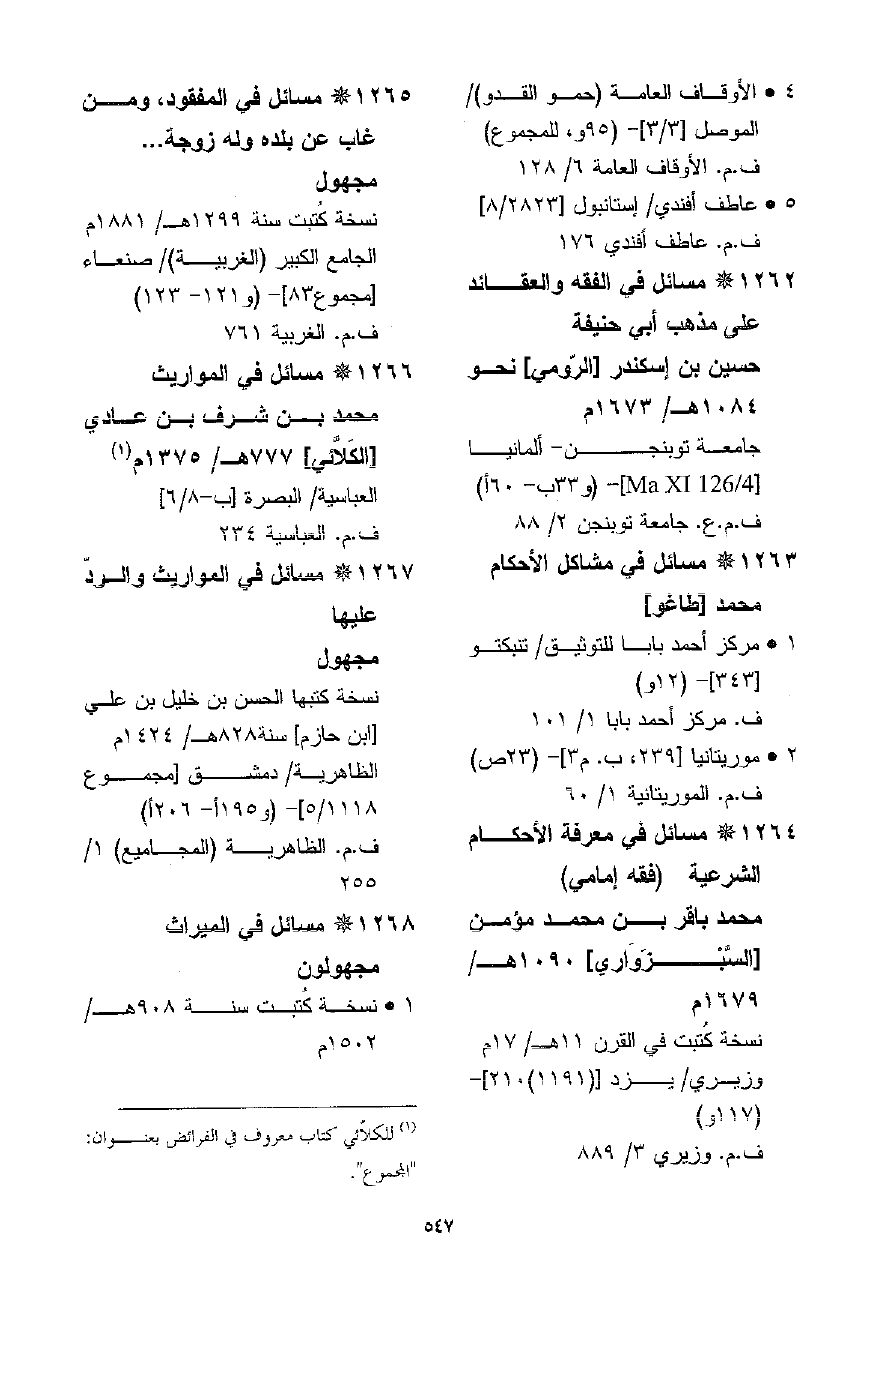 ٤ • الأوقاف العامة (حمو القدو)/
الموصل [٣/٣]- (٩٥و، للمجموع)
ف.م. الأوقاف العامة ٦/ ١٢٨
٥ • عاطف أفندي/ إستانبول [٨/٢٨٢٣]
ف.م. عاطف أفندي ١٧٦
١٢٦٢ ❋ مسائل في الفقه والعقائد
على مذهب أبي حنيفة
حسين بن إسكندر [الرّومي] نحو
١٠٨٤هـ/ ١٦٧٣م
جامعة توبنجن- ألمانيا
[Ma XI 126/4]- (و٣٣ب- ٦٠أ)
ف.م.ع. جامعة توبنجن ٢/ ٨٨
١٢٦٣ ❋ مسائل في مشاكل الأحكام
محمد [طاغو]
١ • مركز أحمد بابا للتوثيق/ تنبكتو
[٣٤٣]- (١٢و)
ف. مركز أحمد بابا ١/ ١٠١
٢ • موريتانيا [٢٣٩، ب. م٣]- (٢٣ص)
ف.م. الموريتانية ١/ ٦٠
١٢٦٤ ❋ مسائل في معرفة الأحكام
الشرعية (فقه إمامي)
محمد باقر بن محمد مؤمن
[السَّبْزَوَاري] ١٠٩٠هـ/
١٦٧٩م
نسخة كُتبت في القرن ١١هـ/ ١٧م
وزيري/ يزد [(١١٩١)٢١٠]-
(١١٧و)
ف.م. وزيري ٣/ ٨٨٩
١٢٦٥ ❋ مسائل في المفقود، ومن
غاب عن بلده وله زوجة...
مجهول
نسخة كُتبت سنة ١٢٩٩هـ/ ١٨٨١م
الجامع الكبير (الغربية)/ صنعاء
[مجموع٨٣]- (و١٢١- ١٢٣)
ف.م. الغربية ٧٦١
١٢٦٦ ❋ مسائل في المواريث
محمد بن شرف بن عادي
[الكَلاَّئي] ٧٧٧هـ/ ١٣٧٥م(١)
العباسية/ البصرة [ب-٦/٨]
ف.م. العباسية ٢٣٤
١٢٦٧ ❋ مسائل في المواريث والردّ
عليها
مجهول
نسخة كتبها الحسن بن خليل بن علي
[ابن حازم] سنة٨٢٨هـ/ ١٤٢٤م
الظاهرية/ دمشق [مجموع
٥/١١١٨]- (و١٩٥أ- ٢٠٦أ)
ف.م. الظاهرية (المجاميع) ١/
٢٥٥
١٢٦٨ ❋ مسائل في الميراث
مجهولون
١ • نسخة كُتبت سنة ٩٠٨هـ/
١٥٠٢م
(١) للكلاّئي كتاب معروف في الفرائض بعنوان:
"المجموع".
٥٤٧